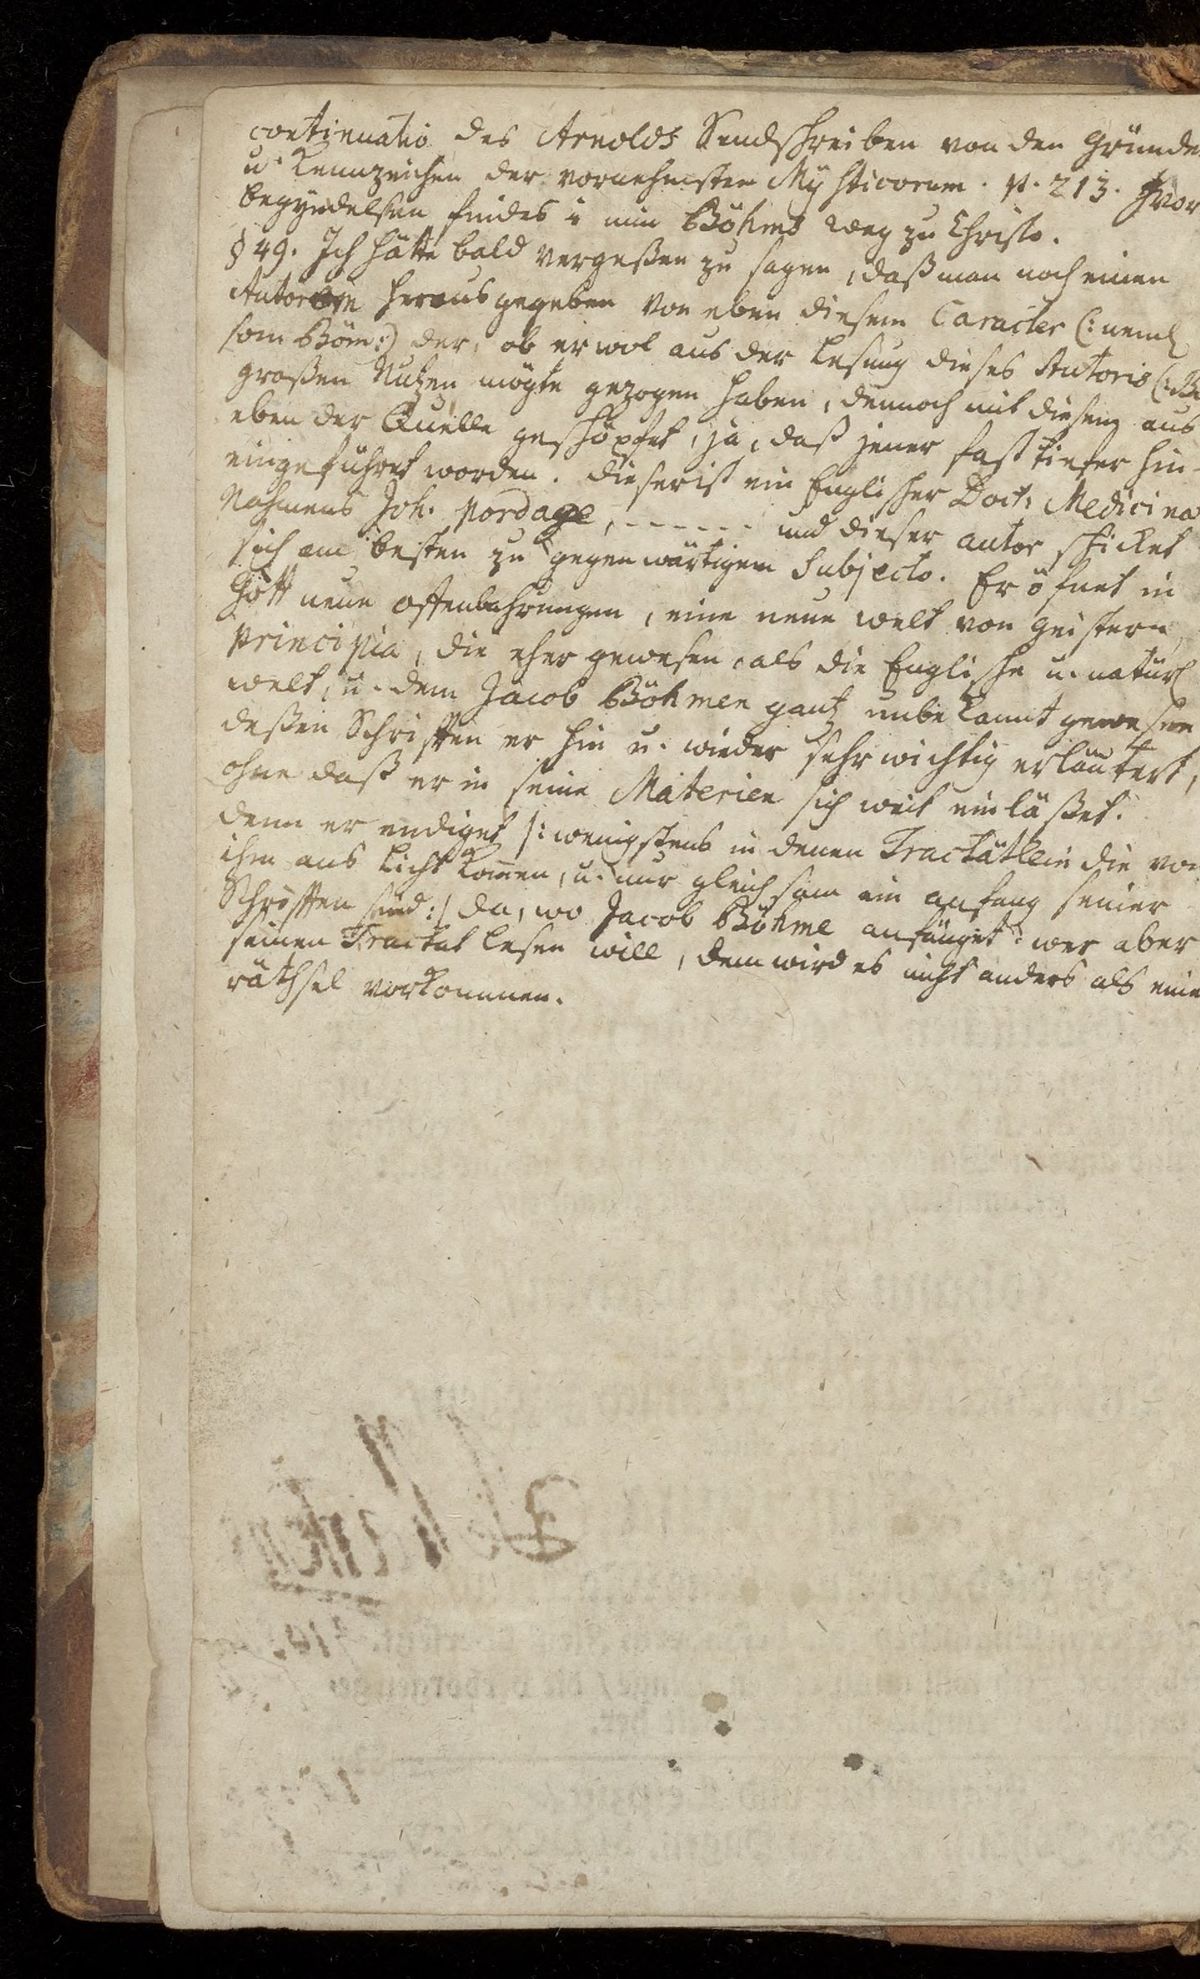 continuatio des Arnolds Sendschreiben von den Gründe
u. Kennzeichen der vornehmsten Mysticorum. p. 213. hvor
begyndelsen findes i min Böhms weg zu Christo.
§ 49. Ich hätte bald vergeßen zu sagen, daß man noch einen
Autorem herausgegeben von eben diesem Caracter (: neml
som Böm :) der, ob er wol aus der Lesung dieses Autoris (: Bö
großen Nutzen mögte gezogen haben, dennoch mit diesem aus
eben der Quelle geschöpfet, ja, daß jener fast tiefer hin-
eingeführet worden. dieser ist ein Englischer Doct: Medicinæ
Nahmens Joh. Pordage, - - - - - - und dieser autor schicket
sich am besten zu gegenwärtigem Subjecto. Er öfnet in
Gott neue offenbahrungen, eine neue welt von geistern,
principia, die eher gewesen, als die Englische u. natürl
welt, u. dem Jacob Böhmen gantz unbekannt gewesen
deßen Schrifften er hin u. wieder sehr wichtig erläutert,
ohne daß er in seine Materien sich weit einläßet.
denn er endiget /: wenigstens in denen Tractätlein die von
ihm ans Licht kommen, u. nur gleichsam ein anfang seiner
Schrifften sind :/ da, wo Jacob Böhme anfänget: wer aber
seinen Tractat lesen will, dem wird es nicht anders als eine
räthsel vorkommen.